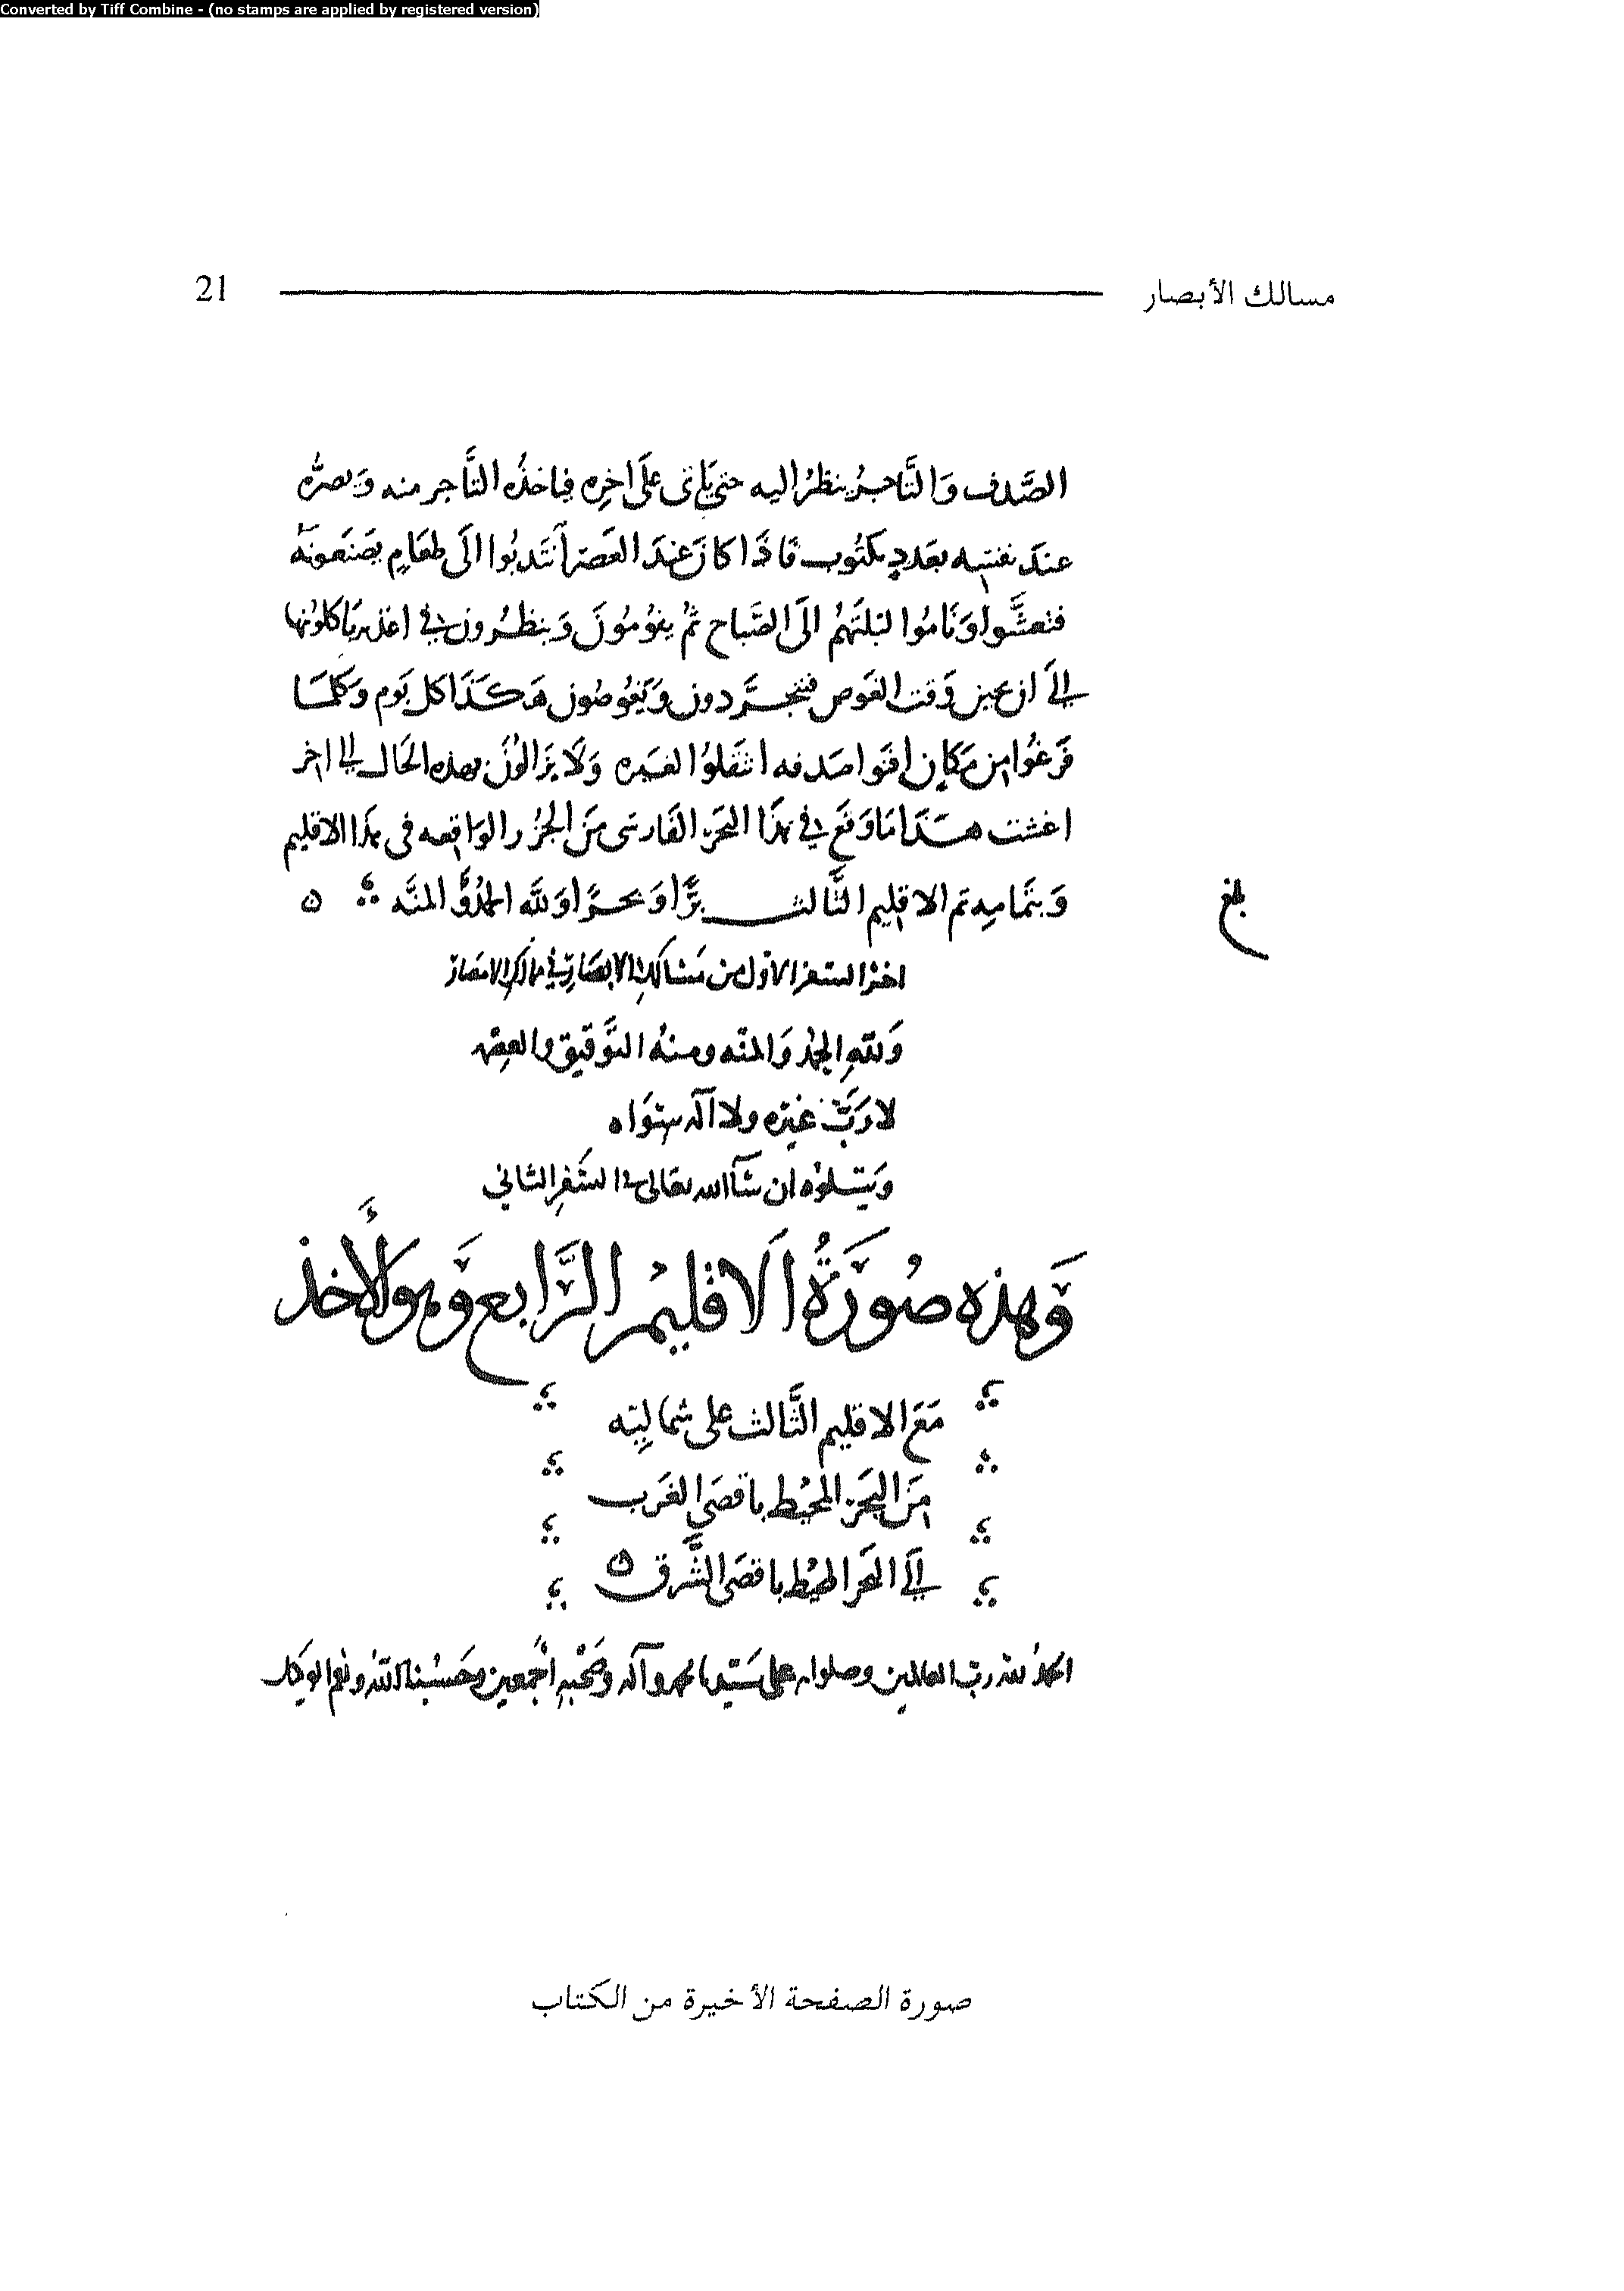 Converted by Tiff Combine - (no stamps are applied by registered version)
مسالك الأبصار
21
الصَّدف وَالتَّاجرُ ينظرُ اليه حتى يَاتى عَلَى اخِره فياخذُه التَّاجر منه وَيصرُّه
عندَ نفسه بعَددٍ مكتُوب فَاذَا كانَ عندَ العَصر انتَدبُوا الَى طعَامٍ يصَنعَونَه
فتعشَّوا وَنَامُوا ليْلَتَهُم الَى الصَّبَاح ثُم يقوُمُونَ وَينظرُون فى اغذية يَاكلوُنها
الىَ ان يحين وَقت الغَوص فيتجرَّدون وَيَغوُصُون هَكَذَا كل يَوم وَكلمَا
فَرغُوا من مَكانٍ افنَوا صَدفه انتقَلوُا لغيره وَلَا يزَالوُنَ بهذه الحَال الى اخر
اغشت هَذَا مَا وَقعَ فى هذَا البَحر الفَارسى منَ الجُزر الوَاقعه فى هذَا الاقليم
وَبتمَامِه تم الاقليم الثَّالث برًّا وَبحرًا وَلله الحمدُ وَالمنَّه ٥
بلغ
اخرُ السفر الاوَّل من مسَالك الابصَار فى ممالك الامصَار
وَلله الحمدُ وَالمنَّه ومنهُ التَّوفيق والعِصمه
لا رَبَّ غيرَه ولا آله سِوَاه
وَيَتلوُه ان شآ الله تعَالى فى السِّفر الثاني
وَهذِه صُورَةُ الَاقليم الرَّابع وَهوَ الأخذ
مَعَ الاقليم الثَّالث على شماليّه
منَ البَحر المحيْط باقصَى الغَرب
الىَ البحَر المحيْط باقصَى الشَّرق ٥
الحمدُ لله ربّ العالمين وصلواته على سَيّدنا محمد وآله وصَحْبِه اجْمعين وحَسْبنا اللهُ ونعم الوَكيل
صورة الصفحة الأخيرة من الكتاب